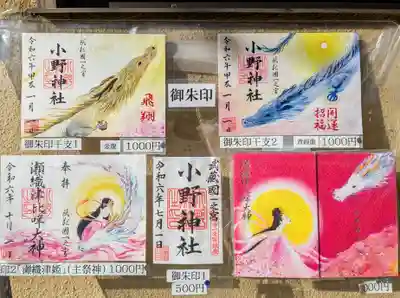 令和六年甲辰一月
武蔵國一之宮
小野神社
飛翔
御朱印干支1
金龍
1000円
御朱印
令和六年甲辰一月
武蔵國一之宮
小野神社
開運
招福
御朱印干支2
青銀龍
1000円
奉拝
武蔵國一之宮
瀬織津比咩大神
令和六年十月二日
印2「瀬織津姫」(主祭神)1000円
武蔵國一之宮
小野神社
令和六年七月一日
御朱印1
500円
000円